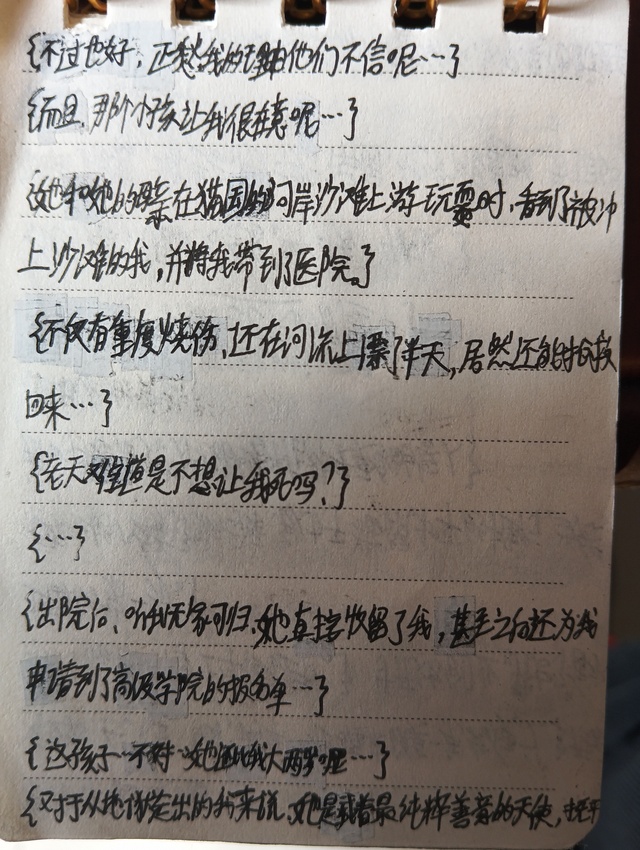 {不过也好,正愁我的理由他们不信呢…}
{而且,那个小孩让我很在意呢…}
{她和她的母亲在猫国的河岸沙滩上游玩耍时,看到了被冲
上沙滩的我,并将我带到了医院。}
{不仅有重度烧伤,还在河流上漂了半天,居然还能抢救
回来…}
{老天难道是不想让我死吗?}
{…}
{出院后、听我无家可归,她直接收留了我,甚至之后还为我
申请到了高级学院的报名单…}
{这孩子…不对…她还比我大两岁喔…}
{对于从地狱走出的我来说,她是或者最纯粹善意的天使,